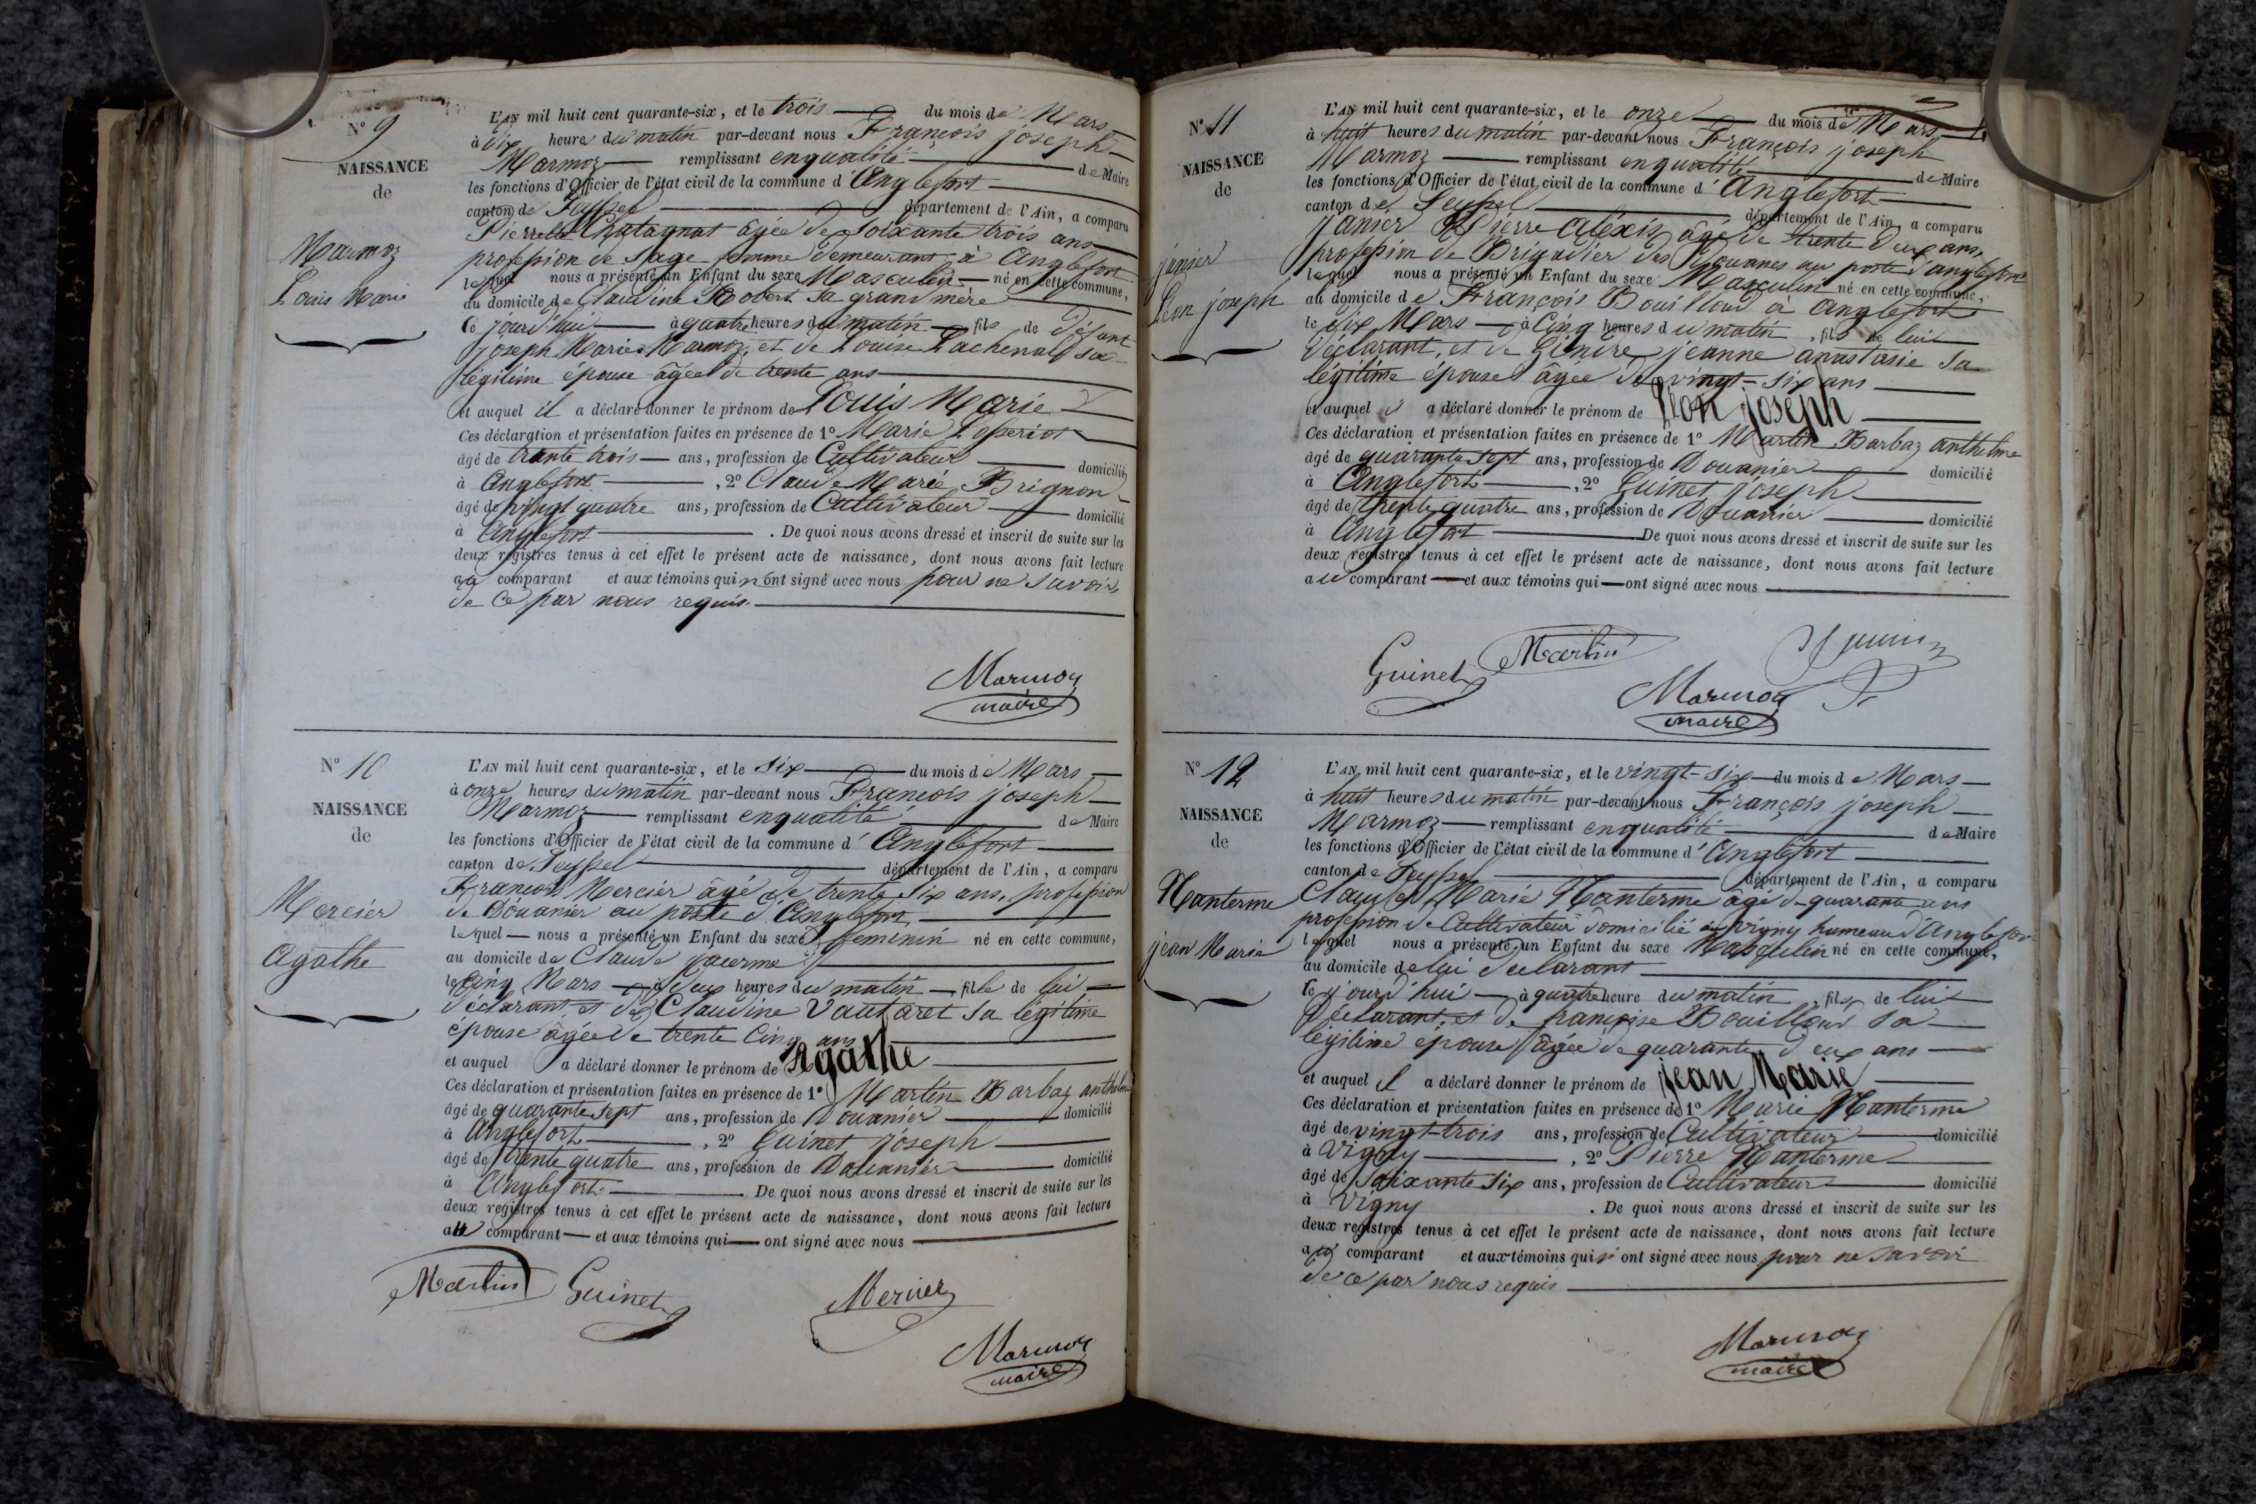 N° 9
NAISSANCE
de
Marmoz
Louis Marie
L'AN mil huit cent quarante-six, et le trois du mois de Mars
à dix heure du matin par-devant nous François joseph
Marmoz remplissant en qualité de Maire
les fonctions d'Officier de l'état civil de la commune d'Anglefort
canton de Seyssel département de l'Ain, a comparu
Pierrette Chatagnat âgée de soixante trois ans
profession de Sage femme demeurant à Anglefort
lequel nous a présenté un Enfant du sexe Masculin né en cette commune,
au domicile de Claudine Robert sa grand mère
ce jourd'hui à quatre heures du matin fils de défunt
joseph Marie Marmoz, et de Louise Lachenal sa
légitime épouse âgée de trente ans
et auquel il a déclaré donner le prénom de Louis Marie
Ces déclaration et présentation faites en présence de 1° Marie
âgé de trente trois ans, profession de Cultivateur domicilié
à Anglefort, 2° Claude Marie Brignon
âgé de vingt quatre ans, profession de Cultivateur domicilié
à Anglefort. De quoi nous avons dressé et inscrit de suite sur les
deux registres tenus à cet effet le présent acte de naissance, dont nous avons fait lecture
au comparant et aux témoins qui n'ont signé avec nous pour ne savoir
de ce par nous requis.
Marmoz
maire
N° 10
NAISSANCE
de
Mercier
Agathe
L'AN mil huit cent quarante-six, et le six du mois de Mars
à onze heures du matin par-devant nous François joseph
Marmoz remplissant en qualité de Maire
les fonctions d'Officier de l'état civil de la commune d'Anglefort
canton de Seyssel département de l'Ain, a comparu
François Mercier âgé de trente six ans, profession
de Douanier au poste d'Anglefort
lequel nous a présenté un Enfant du sexe feminin né en cette commune,
au domicile de Claude
le cinq Mars à deux heures du matin, fille de lui
déclarant, et de Claudine Vautaret sa légitime
épouse âgée de trente cinq ans
et auquel a déclaré donner le prénom de Agathe
Ces déclaration et présentation faites en présence de 1° Martin Barbaz anthelme
âgé de quarante sept ans, profession de Douanier domicilié
à Anglefort, 2° Guinet joseph
âgé de trente quatre ans, profession de Douanier domicilié
à Anglefort. De quoi nous avons dressé et inscrit de suite sur les
deux registres tenus à cet effet le présent acte de naissance, dont nous avons fait lecture
au comparant et aux témoins qui ont signé avec nous
Martin Guinet Mercier
Marmoz
maire
N° 11
NAISSANCE
de
janier
Léon joseph
L'AN mil huit cent quarante-six, et le onze du mois de Mars
à huit heures du matin par-devant nous François joseph
Marmoz remplissant en qualité de Maire
les fonctions d'Officier de l'état civil de la commune d'Anglefort
canton de Seyssel département de l'Ain, a comparu
janier Pierre aléxis âgé de trente deux ans,
profession de Brigadier des Douanes au poste d'anglefort
lequel nous a présenté un Enfant du sexe Masculin né en cette commune,
au domicile de François Bouilloud à Anglefort
le dix Mars à Cinq heures du matin, fils de lui
déclarant, et de Gindre jeanne anastasie sa
légitime épouse âgée de vingt-six ans
et auquel il a déclaré donner le prénom de Léon joseph
Ces déclaration et présentation faites en présence de 1° Martin Barbaz anthelme
âgé de quarante sept ans, profession de Douanier domicilié
à Anglefort, 2° Guinet joseph
âgé de trente quatre ans, profession de Douanier domicilié
à Anglefort De quoi nous avons dressé et inscrit de suite sur les
deux registres tenus à cet effet le présent acte de naissance, dont nous avons fait lecture
au comparant et aux témoins qui ont signé avec nous
Guinet Martin
Marmoz
maire
N° 12
NAISSANCE
de
Nanterme
jean Marie
L'AN mil huit cent quarante-six, et le vingt-six du mois de Mars
à huit heures du matin par-devant nous François joseph
Marmoz remplissant en qualité de Maire
les fonctions d'Officier de l'état civil de la commune d'Anglefort
canton de Seyssel département de l'Ain, a comparu
Claude Marie Nanterme âgé de quarante ans
profession de Cultivateur domicilié à Vigny hameau d'Anglefort
lequel nous a présenté un Enfant du sexe Masculin né en cette commune,
au domicile de lui déclarant
ce jourd'hui à quatre heure du matin, fils de lui
déclarant, et de françoise Bouilloud sa
légitime épouse âgée de quarante deux ans
et auquel il a déclaré donner le prénom de jean Marie
Ces déclaration et présentation faites en présence de 1° Marie Nanterme
âgé de vingt-trois ans, profession de Cultivateur domicilié
à Vigny, 2° Pierre Nanterme
âgé de soixante six ans, profession de Cultivateur domicilié
à Vigny. De quoi nous avons dressé et inscrit de suite sur les
deux registres tenus à cet effet le présent acte de naissance, dont nous avons fait lecture
au comparant et aux témoins qui n'ont signé avec nous pour ne savoir
de ce par nous requis
Marmoz
maire